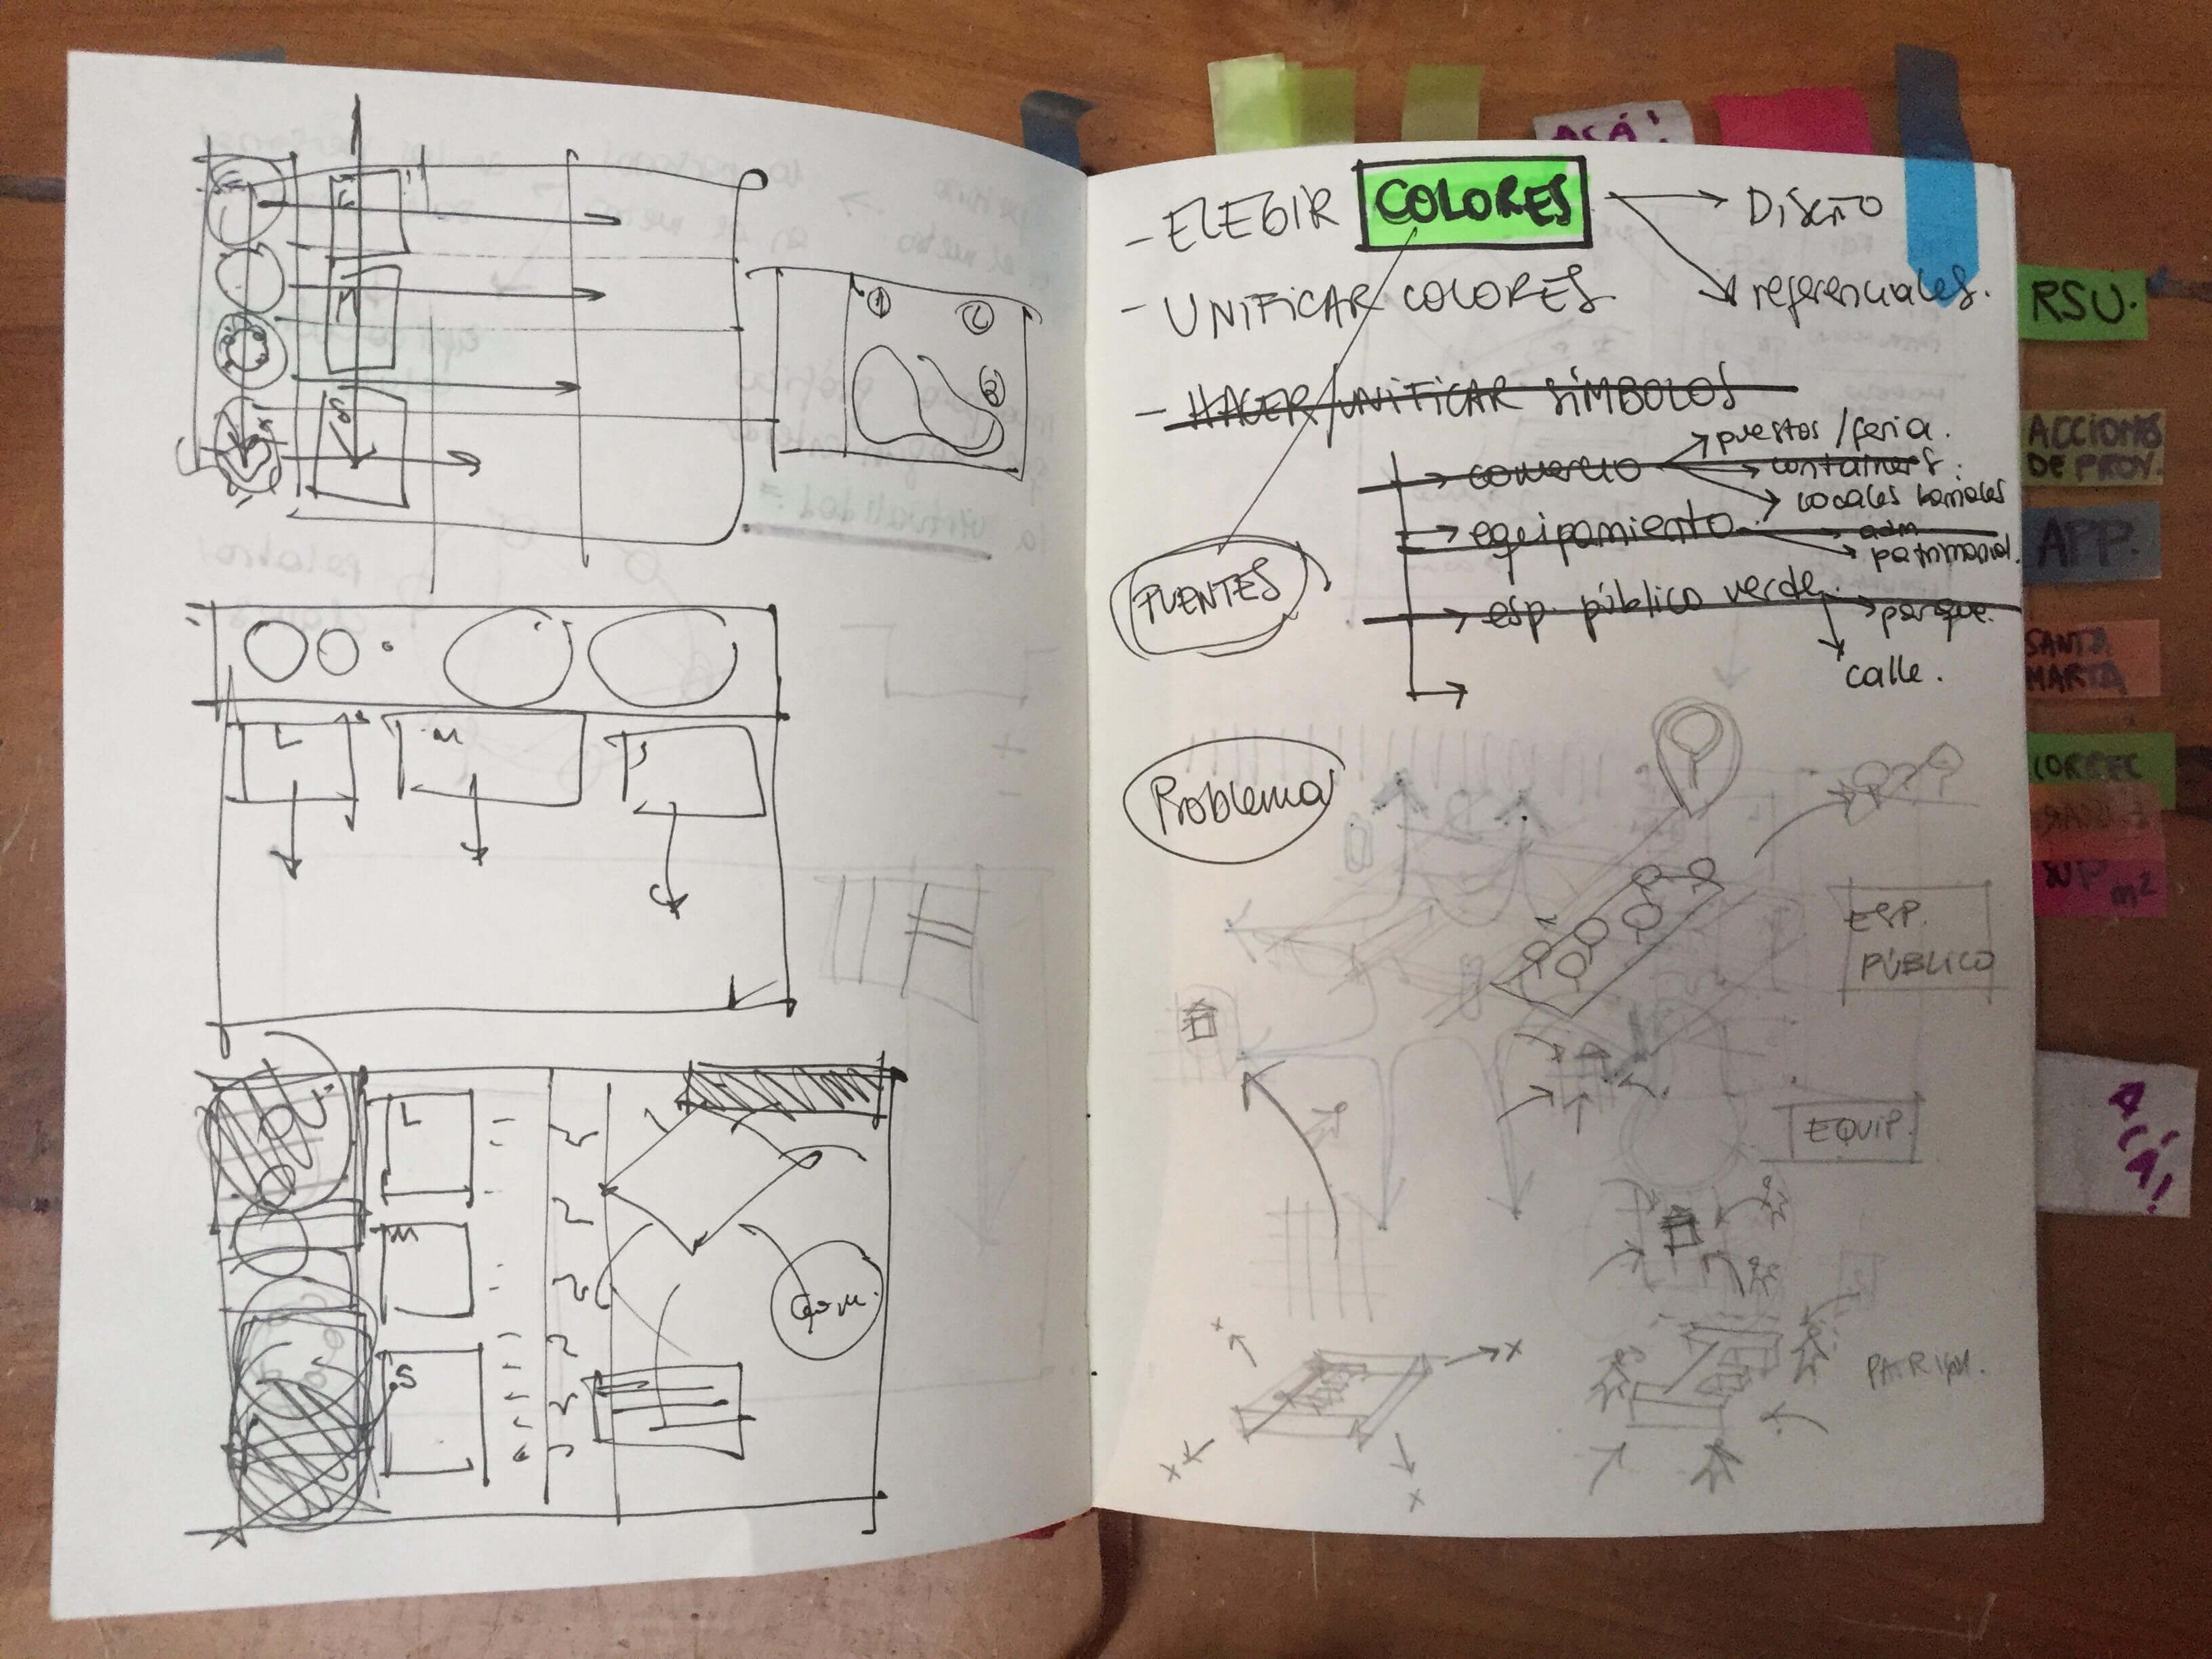 L
M
S
1
2
3
L
M
S
L
M
S
com.
- ELEGIR COLORES → Diseño
→ referenciales.
- UNIFICAR COLORES
- HACER/UNIFICAR SÍMBOLOS
→ comercio → puestos/feria.
→ containers.
→ locales barriales
→ equipamiento → adm.
→ patrimonial.
→ esp. público verde. → parque.
→ calle.
FUENTES
Problema
ESP.
PÚBLICO
EQUIP.
PATRIM.
ACÁ!
RSU.
ACCIONES
DE PROY.
APP.
SANTA
MARTA
CORREC
m²
ACÁ!